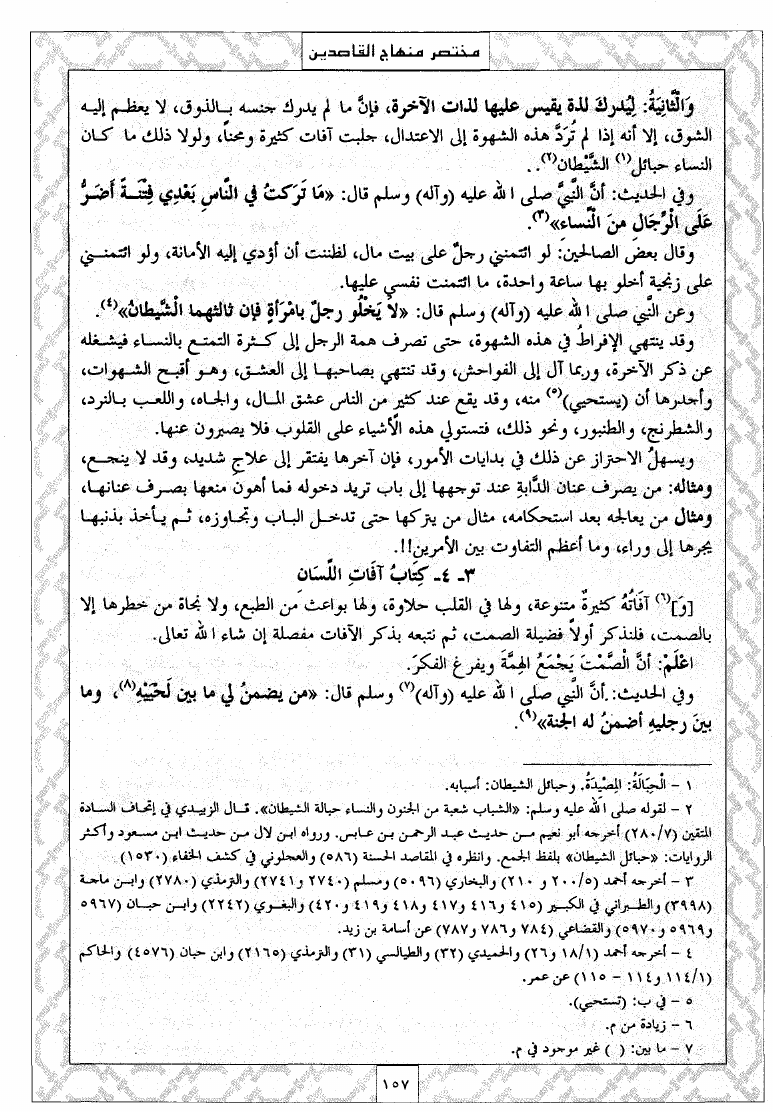 مختصر منهاج القاصدين
وَالثَّانِيَةُ: لِيُدرك لذة يقيس عليها لذات الآخرة، فإنَّ ما لم يدرك جنسه بالذوق، لا يعظم إليه
الشوق، إلا أنه إذا لم تُرَدَّ هذه الشهوة إلى الاعتدال، جلبت آفات كثيرة ومحناً، ولولا ذلك ما كان
النساء حبائل(١) الشَّيْطان(٢)..
وفي الحديث: أنَّ النَّبِيَّ صلى الله عليه (وآله) وسلم قال: «مَا تَرَكتُ في النَّاسِ بَعْدِي فِتْنَةً أَضَرُّ
عَلَى الْرِّجَالِ مِنَ الْنِّساءِ»(٣).
وقال بعض الصالحين: لو ائتمنني رجلٌ على بيت مال، لظننت أن أؤدي إليه الأمانة، ولو ائتمنني
على زنجية أخلو بها ساعة واحدة، ما ائتمنت نفسي عليها.
وعن النَّبي صلى الله عليه (وآله) وسلم قال: «لاَ يَخْلُو رجلٌ بامْرَأةٍ فإن ثالثهما الْشَّيطانُ»(٤).
وقد ينتهي الإفراطُ في هذه الشهوة، حتى تصرف همة الرجل إلى كثرة التمتع بالنساء فيشغله
عن ذكر الآخرة، وربما آل إلى الفواحش، وقد تنتهي بصاحبها إلى العشق، وهو أقبح الشهوات،
وأجدرها أن (يستحيي)(٥) منه، وقد يقع عند كثير من الناس عشق المال، والجاه، واللعب بالنرد،
والشطرنج، والطنبور، ونحو ذلك، فتستولي هذه الأشياء على القلوب فلا يصبرون عنها.
ويسهلُ الاحتراز عن ذلك في بدايات الأمور، فإن آخرها يفتقر إلى علاج شديد، وقد لا ينجع،
ومثاله: من يصرف عنان الدَّابةِ عند توجهها إلى باب تريد دخوله فما أهون منعها بصرف عنانها،
ومثال من يعالجه بعد استحكامه، مثال من يتركها حتى تدخل الباب وتجاوزه، ثم يأخذ بذنبها
يجرها إلى وراء، وما أعظم التفاوت بين الأمرين!!.
٣ـ ٤ـ كِتَابُ آفَاتِ اللِّسَانِ
[وَ](٦) آفَاتُهُ كثيرةٌ متنوعة، ولها في القلب حلاوة، ولها بواعث من الطبع، ولا نجاة من خطرها إلا
بالصمت، فلنذكر أولاً فضيلة الصمت، ثم نتبعه بذكر الآفات مفصلة إن شاء الله تعالى.
اعْلَمْ: أنَّ الْصَّمْتَ يَجْمَعُ الهِمَّةَ ويفرغ الفكرَ.
وفي الحديث: أنَّ النَّبي صلى الله عليه (وآله)(٧) وسلم قال: «من يضمنُ لي ما بين لَحْيَيْهِ(٨)، وما
بينَ رجليهِ أضمنُ له الجنة»(٩).
١ - الْحِبَالَةُ: المِصْيَدَةُ. وحبائل الشيطان: أسبابه.
٢ - لقوله صلى الله عليه وسلم: «الشباب شعبة من الجنون والنساء حبالة الشيطان». قال الزبيدي في إتحاف السادة
المتقين (٢٨٠/٧) أخرجه أبو نعيم من حديث عبد الرحمن بن عابس. ورواه ابن لال من حديث ابن مسعود وأكثر
الروايات: «حبائل الشيطان» بلفظ الجمع. وانظره في المقاصد الحسنة (٥٨٦) والعجلوني في كشف الخفاء (١٥٣٠)
٣ - أخرجه أحمد (٢٠٠/٥ و ٢١٠) والبخاري (٥٠٩٦) ومسلم (٢٧٤٠ و٢٧٤١) والترمذي (٢٧٨٠) وابن ماجة
(٣٩٩٨) والطبراني في الكبير (٤١٥ و٤١٦ و٤١٧ و٤١٨ و٤١٩ و٤٢٠) والبغوي (٢٢٤٢) وابن حبان (٥٩٦٧
و٥٩٦٩ و٥٩٧٠) والقضاعي (٧٨٤ و٧٨٦ و٧٨٧) عن أسامة بن زيد.
٤ - أخرجه أحمد (١٨/١ و٢٦) والحميدي (٣٢) والطيالسي (٣١) والترمذي (٢١٦٥) وابن حبان (٤٥٧٦) والحاكم
(١١٤/١ و١١٤ - ١١٥) عن عمر.
٥ - في ب: (تستحيي).
٦ - زيادة من م.
٧ - ما بين: ( ) غير موجود في م.
١٥٧